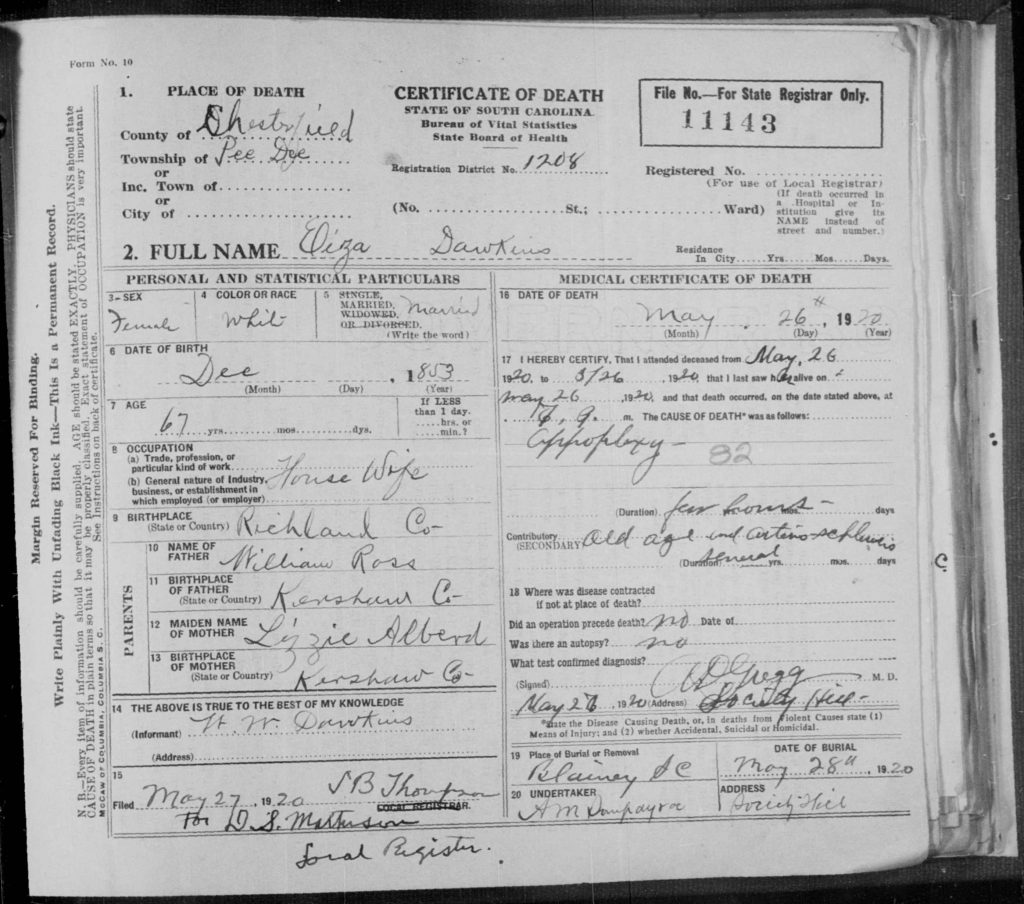 Form No. 10
1. PLACE OF DEATH
County of Chesterfield
Township of Pee Dee
or
Inc. Town of
or
City of
CERTIFICATE OF DEATH
STATE OF SOUTH CAROLINA
Bureau of Vital Statistics
State Board of Health
Registration District No. 1208
(No. St.; Ward)
File No.—For State Registrar Only.
11143
Registered No.
(For use of Local Registrar)
(If death occurred in
a Hospital or In-
stitution give its
NAME instead of
street and number.)
2. FULL NAME Eliza Dawkins
Residence
In City Yrs. Mos. Days.
PERSONAL AND STATISTICAL PARTICULARS
3-SEX
Female
4 COLOR OR RACE
White
5 SINGLE,
MARRIED,
WIDOWED,
OR DIVORCED.
(Write the word)
Married
6 DATE OF BIRTH
Dec , 1853
(Month) (Day) (Year)
7 AGE
67 yrs. mos. dys.
If LESS
than 1 day.
hrs. or
min.?
8 OCCUPATION
(a) Trade, profession, or
particular kind of work
(b) General nature of Industry,
business, or establishment in
which employed (or employer)
House Wife
9 BIRTHPLACE
(State or Country) Richland Co
PARENTS
10 NAME OF
FATHER William Ross
11 BIRTHPLACE
OF FATHER
(State or Country) Kershaw Co
12 MAIDEN NAME
OF MOTHER Lizzie
13 BIRTHPLACE
OF MOTHER
(State or Country) Kershaw Co
14 THE ABOVE IS TRUE TO THE BEST OF MY KNOWLEDGE
(Informant) W. Dawkins
(Address)
15
Filed May 27, 1920 J B Thompson
LOCAL REGISTRAR.
For D. S. Matheson
Local Register.
MEDICAL CERTIFICATE OF DEATH
16 DATE OF DEATH
May 26th, 1920
(Month) (Day) (Year)
17 I HEREBY CERTIFY, That I attended deceased from May, 26
1920 to 5/26, 1920 that I last saw her alive on
May 26, 1920, and that death occurred, on the date stated above, at
m. The CAUSE OF DEATH* was as follows:
Appoplexy
82
(Duration) few hours mos. days
Contributory
(SECONDARY) Old age and
(Duration) Several yrs. mos. days
18 Where was disease contracted
if not at place of death?
Did an operation precede death? no Date of
Was there an autopsy? no
What test confirmed diagnosis?
(Signed) Gregg M. D.
May 26, 1920 (Address) Society Hill
*State the Disease Causing Death, or, in deaths from Violent Causes state (1)
Means of Injury; and (2) whether Accidental, Suicidal or Homicidal.
19 Place of Burial or Removal
Blainey SC
DATE OF BURIAL
May 28th, 1920
20 UNDERTAKER
A M
ADDRESS
Society Hill
Margin Reserved For Binding.
Write Plainly With Unfading Black Ink—This Is a Permanent Record.
N. B.—Every item of information should be carefully supplied. AGE should be stated EXACTLY. PHYSICIANS should state
CAUSE OF DEATH in plain terms so that it may be properly classified. Exact statement of OCCUPATION is very important.
See instructions on back of certificate.
McCAW OF COLUMBIA, COLUMBIA S. C.